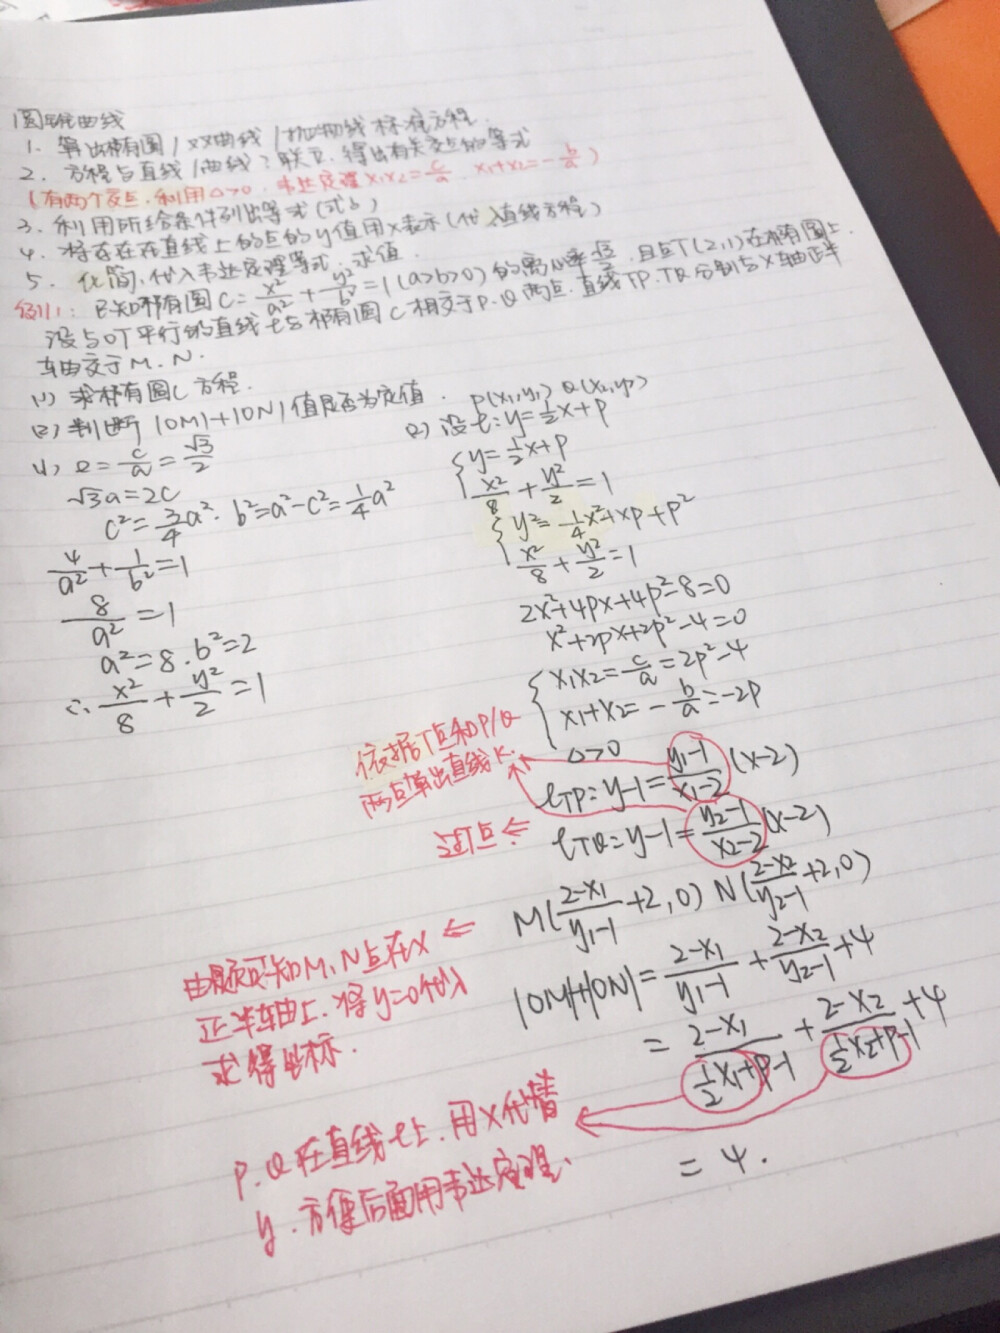 圆锥曲线
1. 算出椭圆/双曲线/抛物线标准方程.
2. 方程与直线/曲线?联立.得出有关交点的等式
(有两个交点.利用△>0.韦达定理x₁x₂=c/a x₁+x₂=-b/a)
3. 利用所给条件列出等式(式δ)
4. 将存在在直线上的点的y值用x表示(代入直线方程)
5. 化简.代入韦达定理等式.求值.
例1: 已知椭圆C=x²/a²+y²/b²=1(a>b>0)的离心率√3/2.且点T(2,1)在椭圆上.
设与OT平行的直线l与椭圆C相交于P.Q两点.直线TP.TQ分别与X轴正半
轴交于M.N.
(1) 求椭圆C方程.
(2) 判断|OM|+|ON|值是否为定值.
(1) e=c/a=√3/2
√3a=2c
c²=3/4a². b²=a²-c²=1/4a²
4/a²+1/b²=1
8/a²=1
a²=8.b²=2
∴x²/8+y²/2=1
P(x₁,y₁) Q(x₂,y₂)
(2) 设l:y=½x+p
{y=½x+p
x²/8+y²/2=1
{y²=¼x²+xp+p²
x²/8+y²/2=1
2x²+4px+4p²-8=0
x²+2px+2p²-4=0
{x₁x₂=c/a=2p²-4
x₁+x₂=-b/a=-2p
△>0
依据T点和P/Q
两点算出直线k.
lTP=y-1=(y₁-1)/(x₁-2)(x-2)
过T点 ⇐ lTQ=y-1=(y₂-1)/(x₂-2)(x-2)
M((2-x₁)/(y₁-1)+2,0) N((2-x₂)/(y₂-1)+2,0)
由题可知M、N点在X
正半轴上.将y=0代入
求得坐标.
|OM|+|ON|=(2-x₁)/(y₁-1)+(2-x₂)/(y₂-1)+4
=(2-x₁)/(½x₁+p-1)+(2-x₂)/(½x₂+p-1)+4
P.Q在直线l上.用X代替
y.方便后面用韦达定理.
=4.